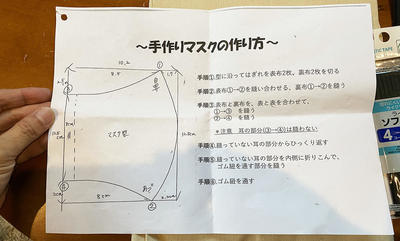 ～手作りマスクの作り方～
手順①.型に沿ってはぎれを表布2枚、裏布2枚を切る
手順②.表布①→②を縫い合わせる、裏布①→②を縫う
手順③.表布と裏布を、表と表を合わせて、
①→③ を縫う
②→④ を縫う
＊注意 耳の部分(③→④)は縫わない
手順④.縫っていない耳の部分からひっくり返す
手順⑤.縫っていない耳の部分を内側に折りこんで、
ゴム紐を通す部分を縫う
手順⑥.ゴム紐を通す
10.2
8.5
①
鼻
③
マスク型
④
あご
②
8cm
ソフ
4